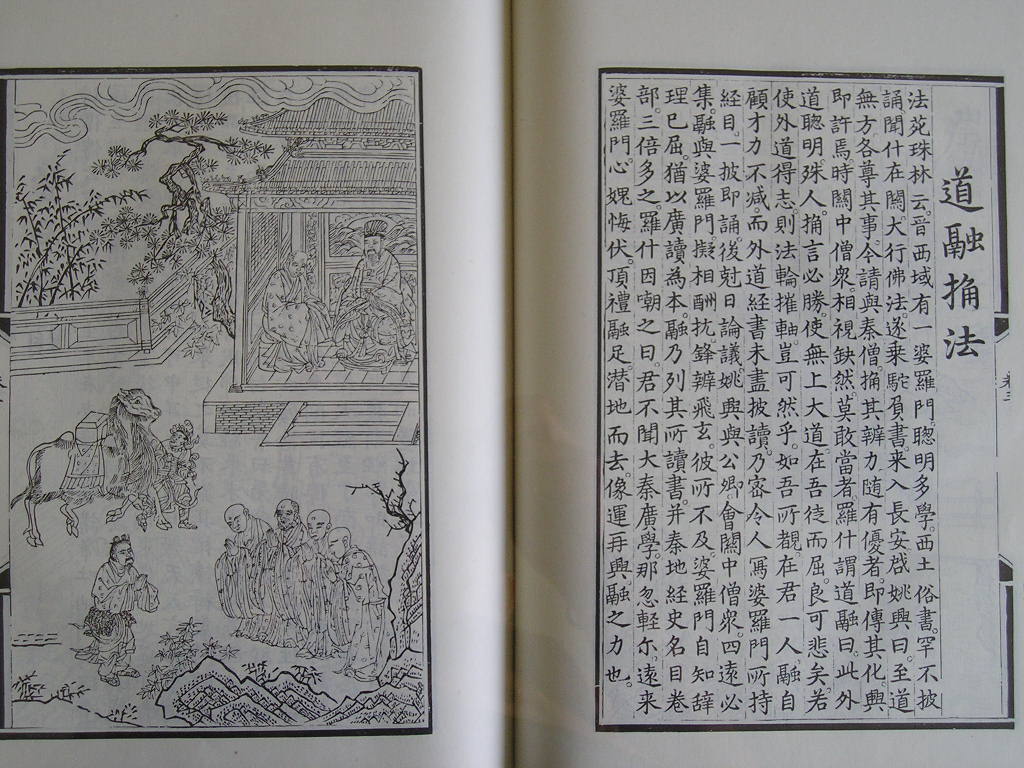 道融捔法
法苑珠林云。晉西域有一婆羅門。聰明多學。西土俗書。罕不披
誦。聞什在關。大行佛法。遂乗駝負書。来入長安。啟姚興曰。至道
無方。各尊其事。今請與秦僧捔其辨力。隨有優者。即傳其化。興
即許焉。時關中僧衆。相視缺然。莫敢當者。羅什謂道融曰。此外
道聰明殊人。捔言必勝。使無上大道。在吾徒而屈。良可悲矣。若
使外道得志。則法輪摧軸。豈可然乎。如吾所覩。在君一人。融自
顧才力不減。而外道經書未盡披讀。乃密令人寫婆羅門所持
經目。一披即誦。後尅日論議。姚興與公卿會闕中僧衆四遠必
集。融與婆羅門擬相酬抗。鋒辨飛玄。彼所不及。婆羅門自知辞
理已屈。猶以廣讀為本。融乃列其所讀書。并秦地經史名目卷
部。三倍多之。羅什因嘲之曰。君不聞大秦廣學。那忽輕尔遠来
婆羅門心媿悔伏。頂禮融足。潜地而去。像運再興。融之力也。
卷三